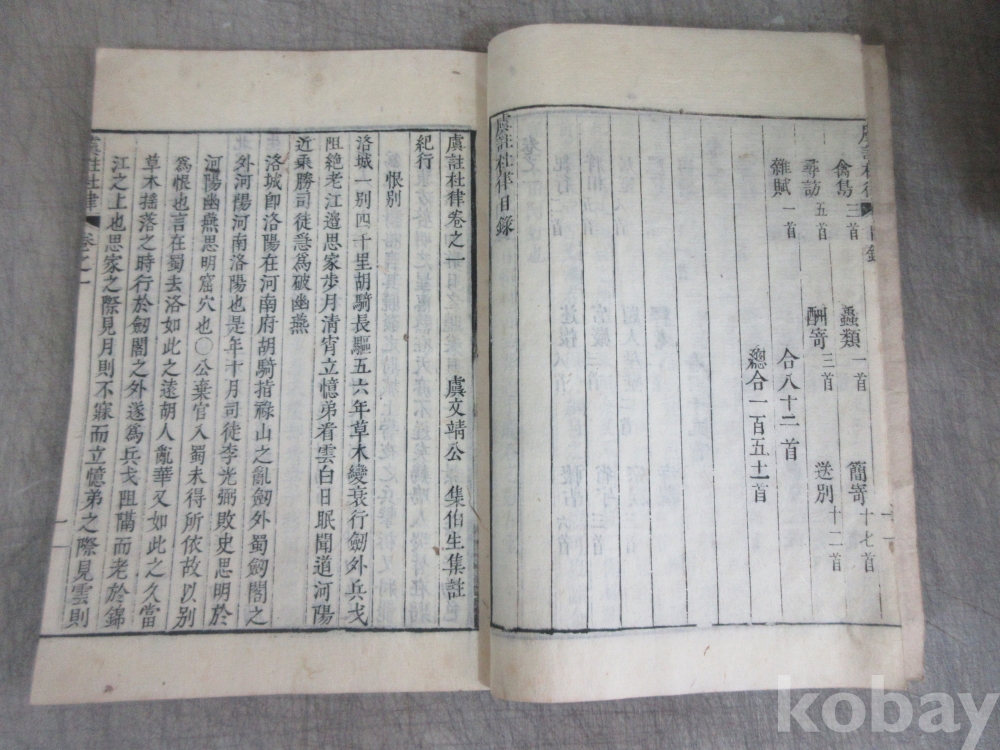 禽鳥三首 蟲類一首 簡寄十七首
尋訪五首 酬寄三首 送別十二首
雜賦一首 合八十二首
總合一百五十一首
虞註杜律目錄
虞註杜律卷之一 虞文靖公 集伯生集註
紀行
恨別
洛城一別四千里胡騎長驅五六年草木變衰行劒外兵戈
阻絶老江邉思家步月淸宵立憶弟看雲白日眠聞道河陽
近乗勝司徒急爲破幽燕
洛城卽洛陽在河南府胡騎指祿山之亂劒外蜀劒閣之
外河陽河南洛陽也是年十月司徒李光弼敗史思明於
河陽幽燕思明窟穴也〇公棄官入蜀未得所依故以別
爲恨也言在蜀去洛如此之遠胡人亂華又如此之久當
草木揺落之時行於劒閣之外遂爲兵戈阻隔而老於錦
江之上也思家之際見月則不寐而立憶弟之際見雲則
虞註杜律 卷之一 一
kobay